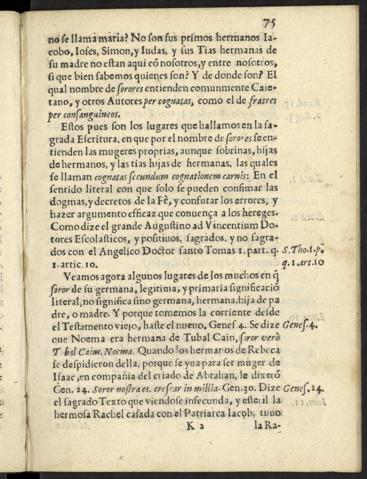 75
no se llama maria? No son sus primos hermanos Ia-
cobo, Ioses, Simon, y Iudas, y sus Tias hermanas de
su madre no estan aqui cō nosotros, y entre nosotros,
si que bien sabemos quienes son? Y de donde son? El
qual nombre de sorores entienden comunmente Caie-
tano, y otros Autores per cognatas, como el de fratres
per consanguineos.
Estos pues son los lugares que hallamos en la sa-
grada Escritura, en que por el nombre de sorores se en-
tienden las mugeres proprias, aunque sobrinas, hijas
de hermanos, y las tias hijas de hermanas, las quales
se llaman cognatas secundum cognationem carnis: En el
sentido literal con que solo se pueden confirmar las
dogmas, y decretos de la Fè, y confutar los errores, y
hazer argumento efficaz que convença a los hereges.
Como dize el grande Augustino ad Vincentium Do-
tores Escolasticos, y positiuos, sagrados, y no sagra-
dos con el Angelico Doctor santo Tomas 1. part. q.
1. artic. 10.
S. Tho. 1. p.
q. 1. art. 10
Veamos agora algunos lugares de los muchos en q̃
soror de su germana, legitima, y primaria significaciō
literal, no significa sino germana, hermana hija de pa
dre, o madre. Y porque tomemos la corriente desde
el Testamento viejo, haste el nueuo. Genes 4. Se dize
Genes. 4.
que Noema era hermana de Tubal Cain, soror verò
Tubal Caim, Noema. Quando los hermanos de Rebeca
se despidieron della, porque se yua para ser muger de
Isaac, en compañia del criado de Abrahan, le dixerō
Gen. 24. Soror nostra es. crescas in millia. Gen. 30. Dize
Genes. 24.
el sagrado Texto que viendose infecunda, y esteril la
hermosa Rachel casada con el Patriarca Iacob, tuuo
K 2
la Ra-